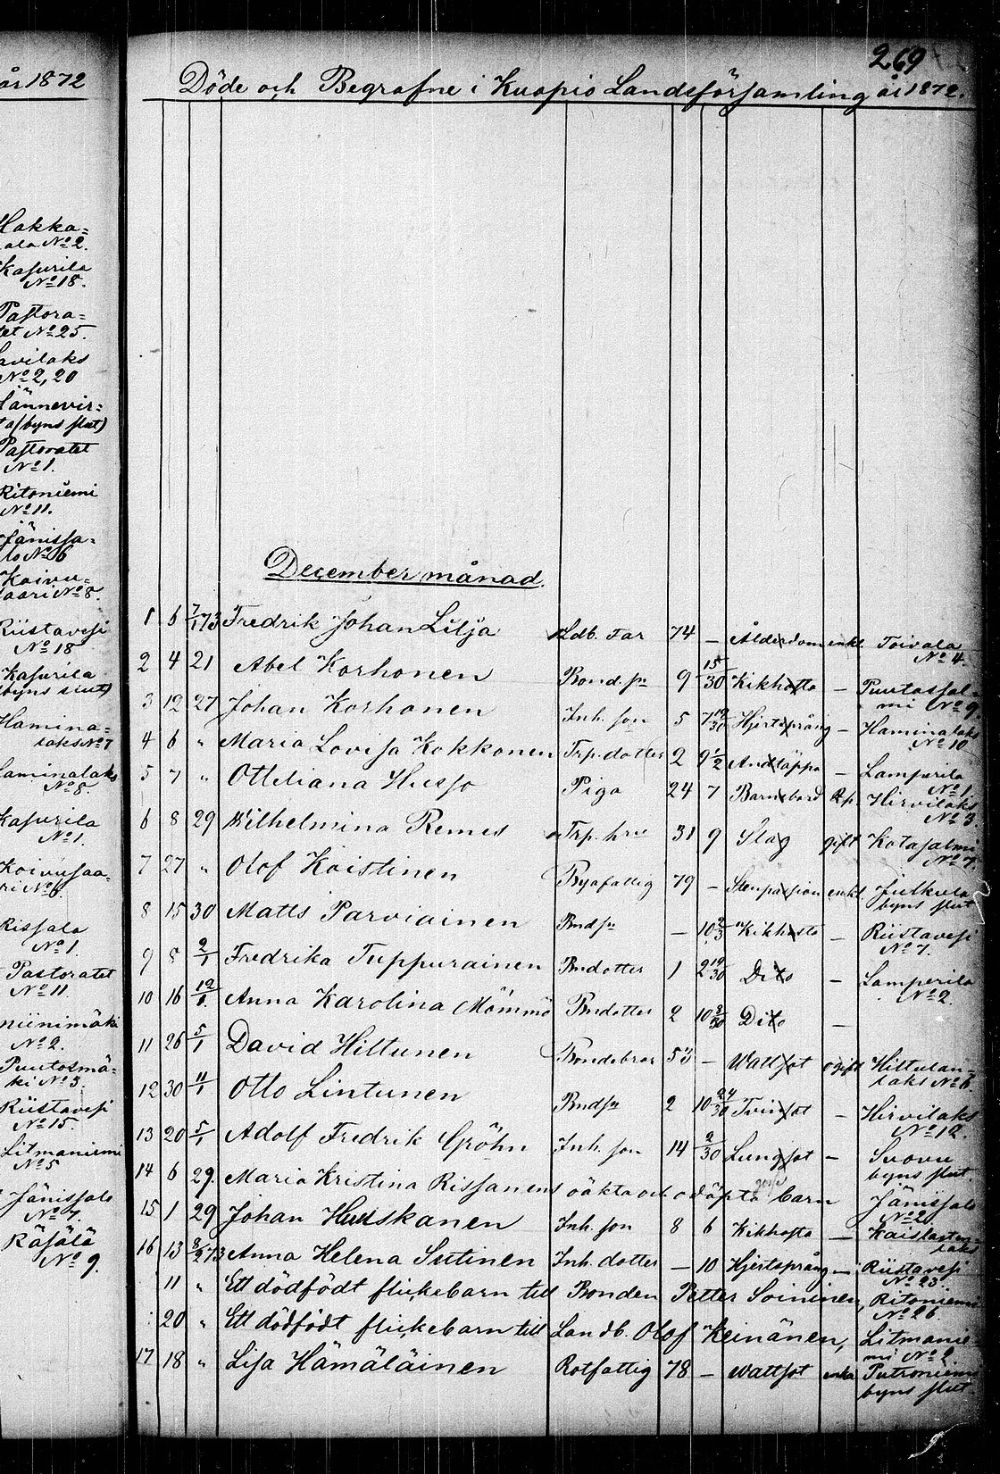 år 1872
Hakka=
ala No 2.
Kasurila
No 18.
Pastora=
tet No 25.
Savilaks
No 2, 20
Jännevir=
ta (byns slut)
Pastoratet
No 1.
Ritoniemi
No 11.
Jänissa=
lo No 16
Koivu=
saari No 8.
Riistavesi
No 18
Kasurila
byns slut)
Hamina=
laks No 7
Haminalaks
No 8.
Kasurila
No 1.
Koivusaa=
ri No 6.
Rissala
No 1.
Pastoratet
No 11.
Niinimäki
No 2.
Puutosmä=
ki No 3.
Riistavesi
No 15.
Litmaniemi
No 5
Jänissalo
No 7.
Räsälä
No 9.
269
Döde och Begrafne i Kuopio Landsförsamling år 1872.
December månad.
1 6 7/1 73 Fredrik Johan Lilja Ldb. Far 74 – Ålderdom enkl. Toivala No 4.
2 4 21 Abel Korhonen Bond.sn 9 15/30 Kikhosta – Puutossal=mi No 9.
3 12 27 Johan Korhonen Inh. son 5 7 12/30 Hjertsprång – Haminalaks No 10
4 6 " Maria Lovisa Kokkonen Trp. dotter 2 9 1/2 Andtäppa – Lamperila No 1.
5 7 " Ottiliana Husso Piga 24 7 Barnsbörd Hirvilaks No 3.
6 8 29 Wilhelmina Remes Trp. hru 31 9 Slag gift Kotasalmi No 7.
7 27 " Olof Koistinen Byafattig 79 – Stenpassion enkl. Julkula byns slut
8 15 30 Matts Parviainen Bndsn – 10 2/3 Kikhosta – Riistavesi No 7.
9 8 2/1 Fredrika Tuppurainen Bndotter 1 2 19/30 Dito – Lamperila No 2.
10 16 12/1 Anna Karolina Mömmö Bndotter 2 10 2/30 Dito –
11 26 5/1 David Hiltunen Bondebror 53 – Wattsot ogift Hiltulan=laks No 6
12 30 11/1 Otto Lintunen Bndsn 2 10 24/30 Tvinsot – Hirvilaks No 12.
13 20 5/1 Adolf Fredrik Gröhn Inh. son 14 2/30 Lungsot – Suovu byns slut.
14 6 29. Maria Kristina Rissanens oäkta och odöpta barn Jänissalo No 2.
15 1 29 Johan Huuskanen Inh. son 8 6 Kikhosta – Kaislasten=laks
16 13 8/2 73 Anna Helena Sutinen Inh. dotter – 10 Hjertsprång – Riistavesi No 23
11 " Ett dödfödt flickebarn till Bonden Petter Soininen, Ritoniemi No 26.
20 " Ett dödfödt flickebarn till Landb. Olof Keinänen, Litmanie=mi No 2.
17 18 " Lisa Hämäläinen Rotfattig 78 – Wattsot enka Putroniemi byns slut